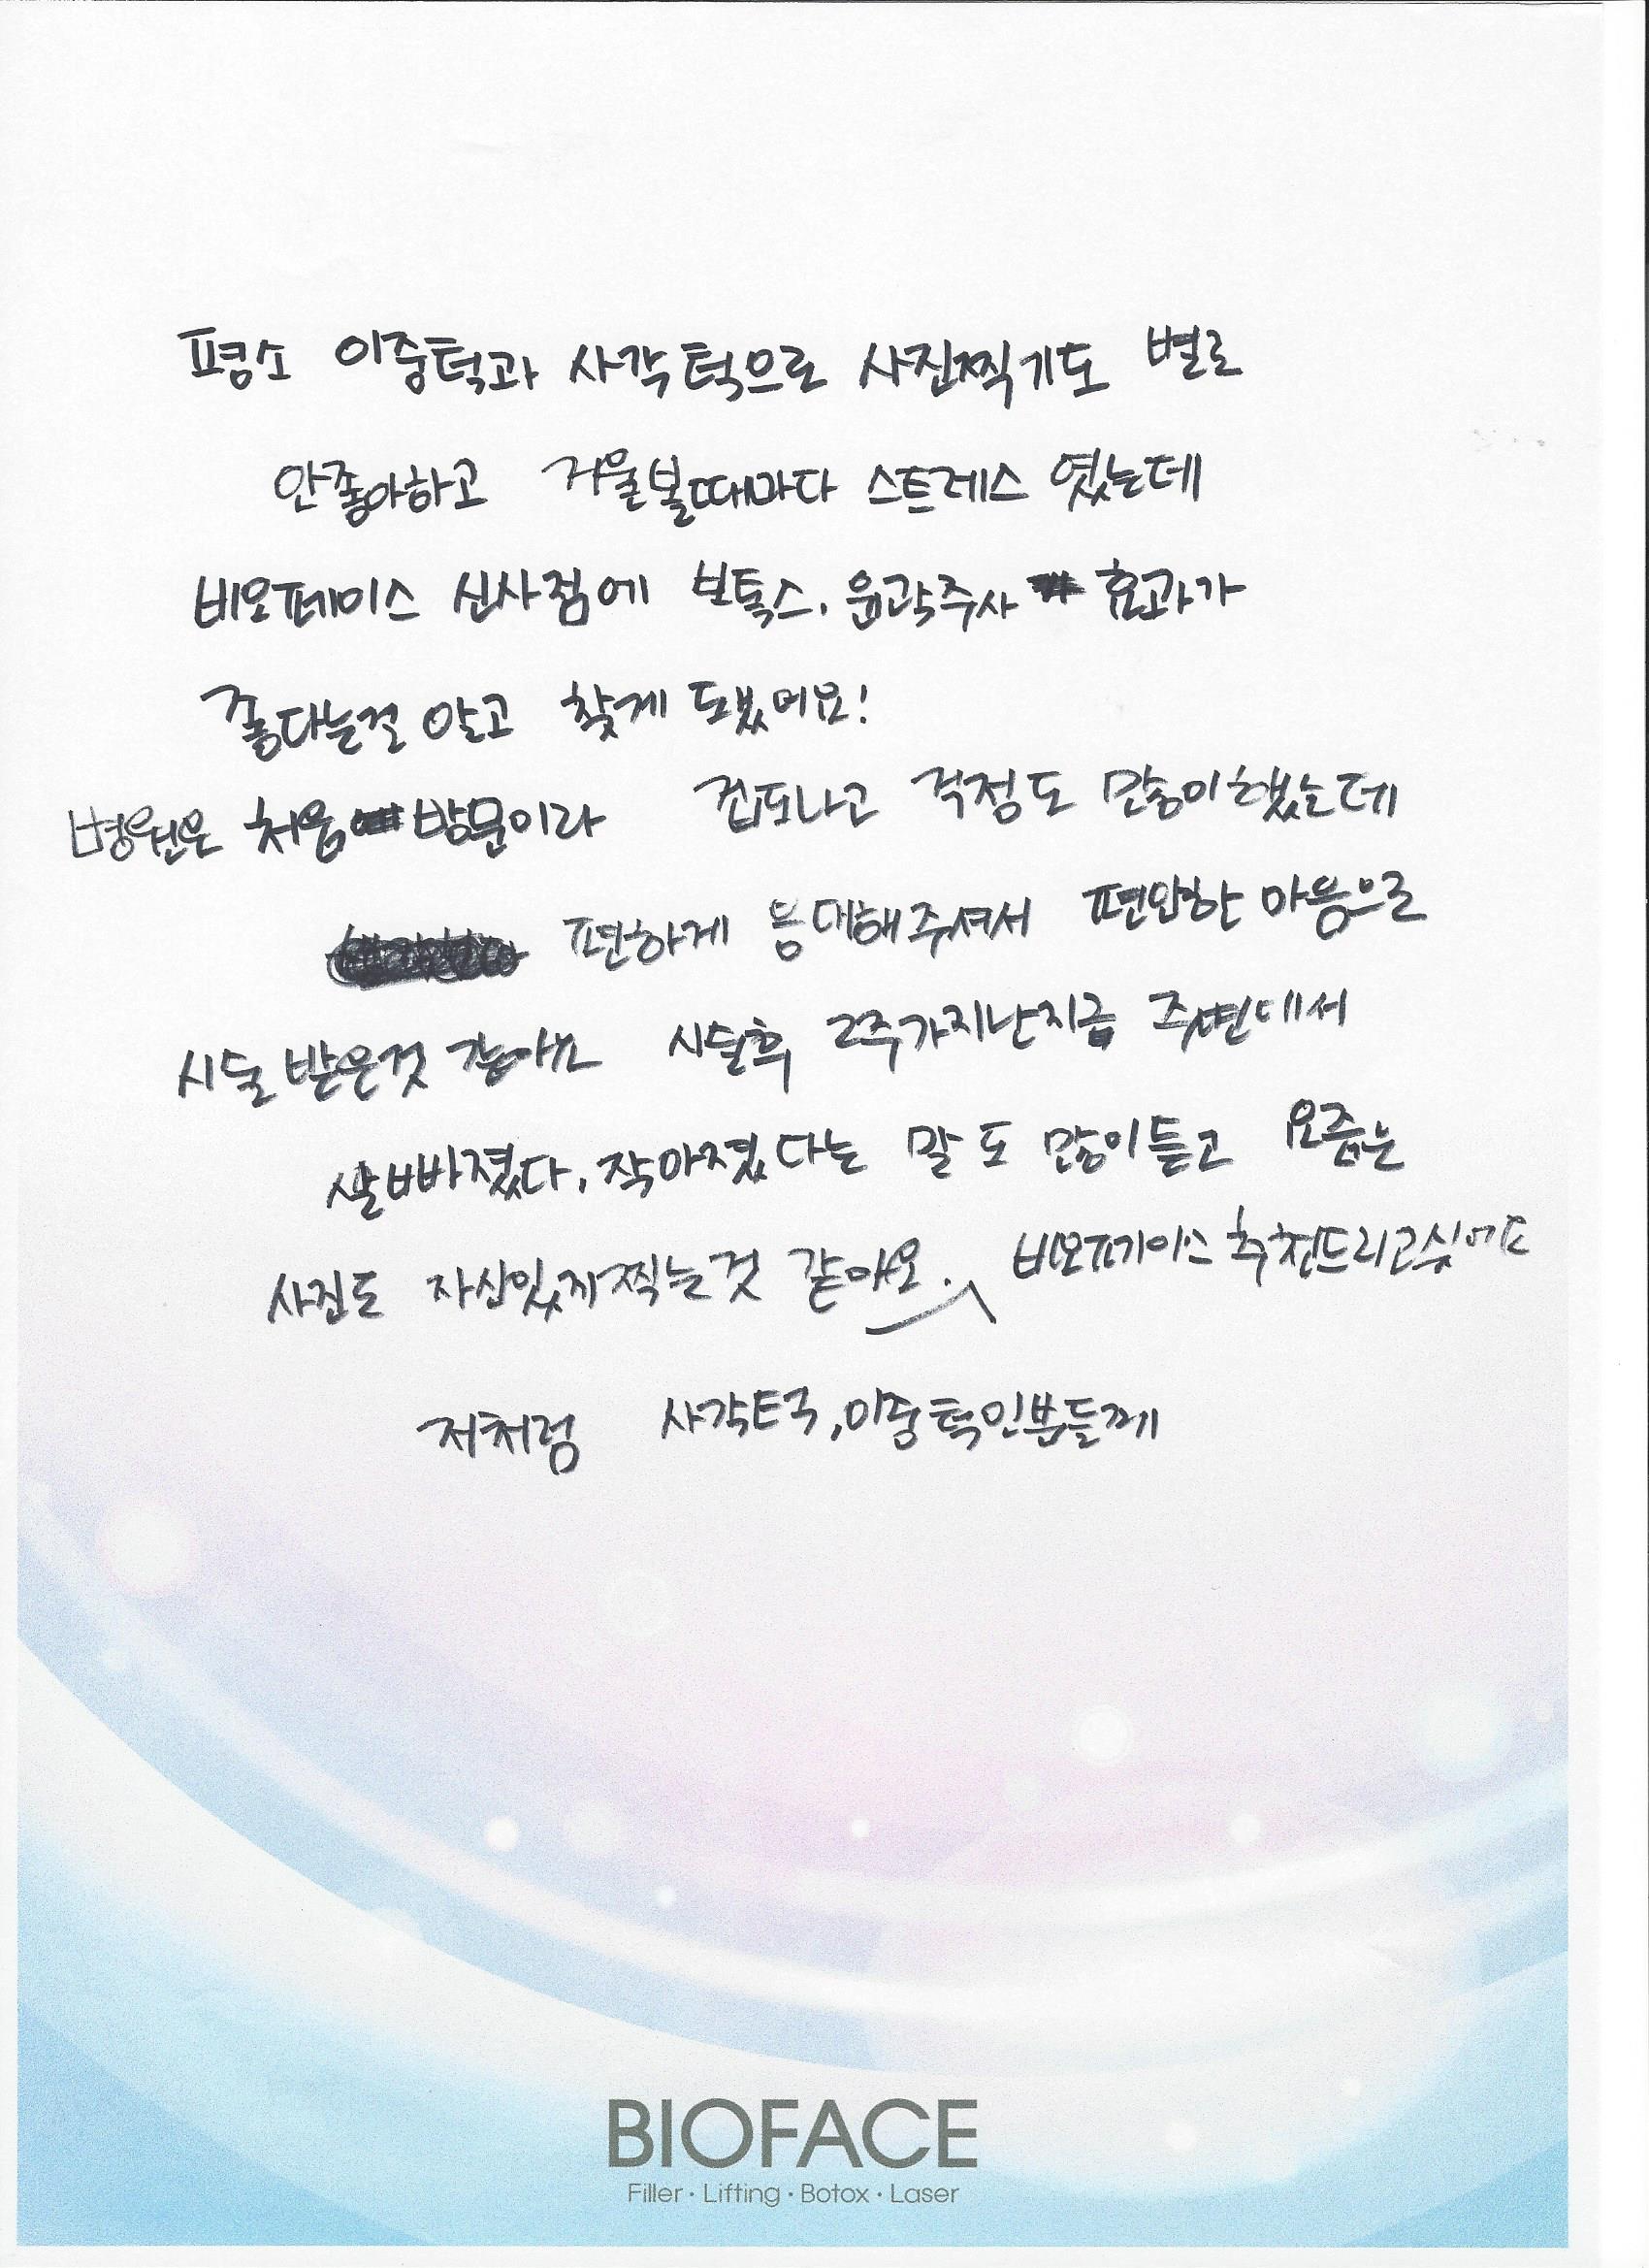 평소 이중턱과 사각턱으로 사진찍기도 별로
안좋아하고 거울볼때마다 스트레스 였는데
비오페이스 신사점에 보톡스, 윤곽주사 효과가
좋다는걸 알고 찾게 되었어요!
병원은 처음 방문이라 겁도나고 걱정도 많이했는데
편하게 응대해주셔서 편안한 마음으로
시술 받은것 같아요 시술후 2주가지난지금 주변에서
살빠졌다, 작아졌다는 말도 많이듣고 요즘은
사진도 자신있게찍는것 같아요. 비오페이스 추천드리고싶어요
저처럼 사각턱, 이중턱인분들께
BIOFACE
Filler · Lifting · Botox · Laser